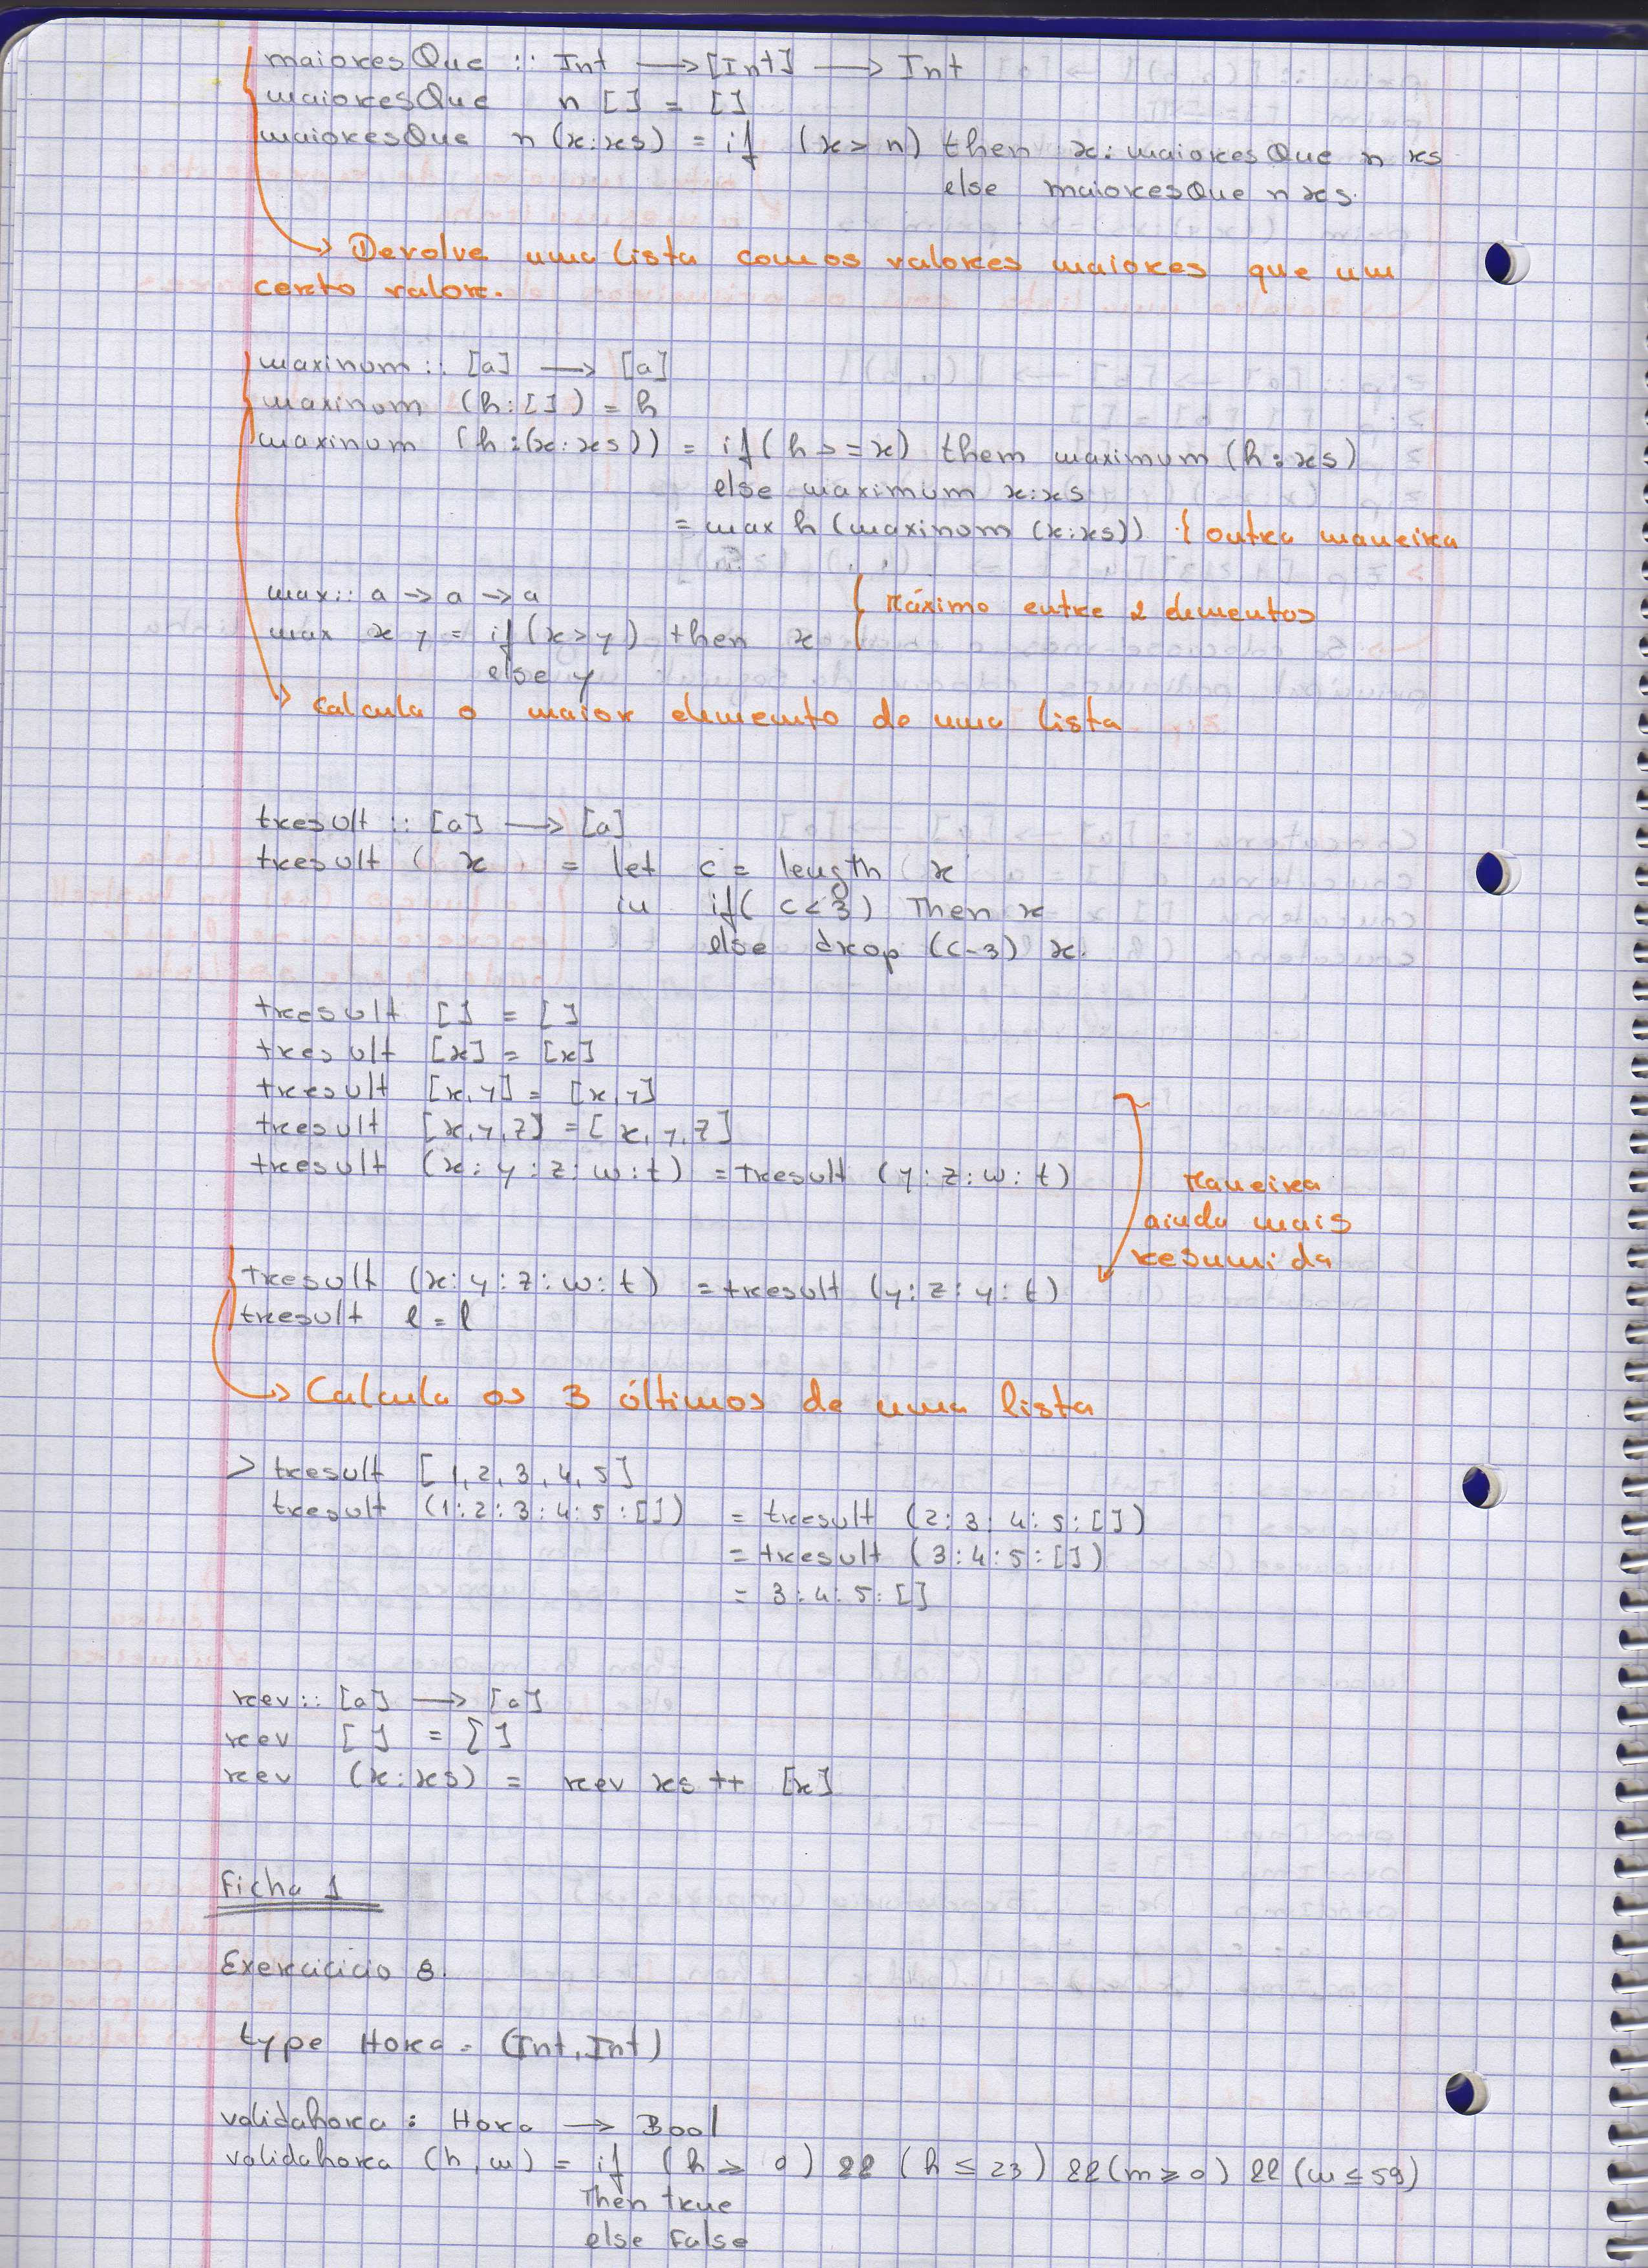 maioresQue :: Int → [Int] → Int
maioresQue n [] = []
maioresQue n (x:xs) = if (x > n) then x: maioresQue n xs
else maioresQue n xs.
→ Devolve uma lista com os valores maiores que um
certo valor.
maxinum :: [a] → [a]
maxinum (h:[]) = h
maxinum (h:(x:xs)) = if (h >= x) them maximum (h:xs)
else maximum x:xs
= max h (maxinom (x:xs)) { outra maneira
max :: a → a → a
max x y = if (x > y) then x
else y
{ Máximo entre 2 elementos
→ Calcula o maior elemento de uma lista
tresult :: [a] → [a]
tresult ( x = let c = length ( x
in if( c < 3) Then x
else drop (c-3) x.
tresult [] = []
tresult [x] = [x]
tresult [x,y] = [x,y]
tresult [x,y,z] = [x,y,z]
tresult (x:y:z:w:t) = tresult (y:z:w:t)
Maneira
ainda mais
resumida
tresult (x:y:z:w:t) = tresult (y:z:y:t)
tresult l = l
→ Calcula os 3 últimos de uma lista
> tresult [1,2,3,4,5]
tresult (1:2:3:4:5:[]) = tresult (2:3:4:5:[])
= tresult (3:4:5:[])
= 3:4:5:[]
rev :: [a] → [a]
rev [] = []
rev (x:xs) = rev xs ++ [x]
Ficha 1
Exercicicio 8.
type Hora = (Int,Int)
validahora : Hora → Bool
validahora (h,m) = if (h ≥ 0) && (h ≤ 23) && (m ≥ 0) && (m ≤ 59)
Then true
else False